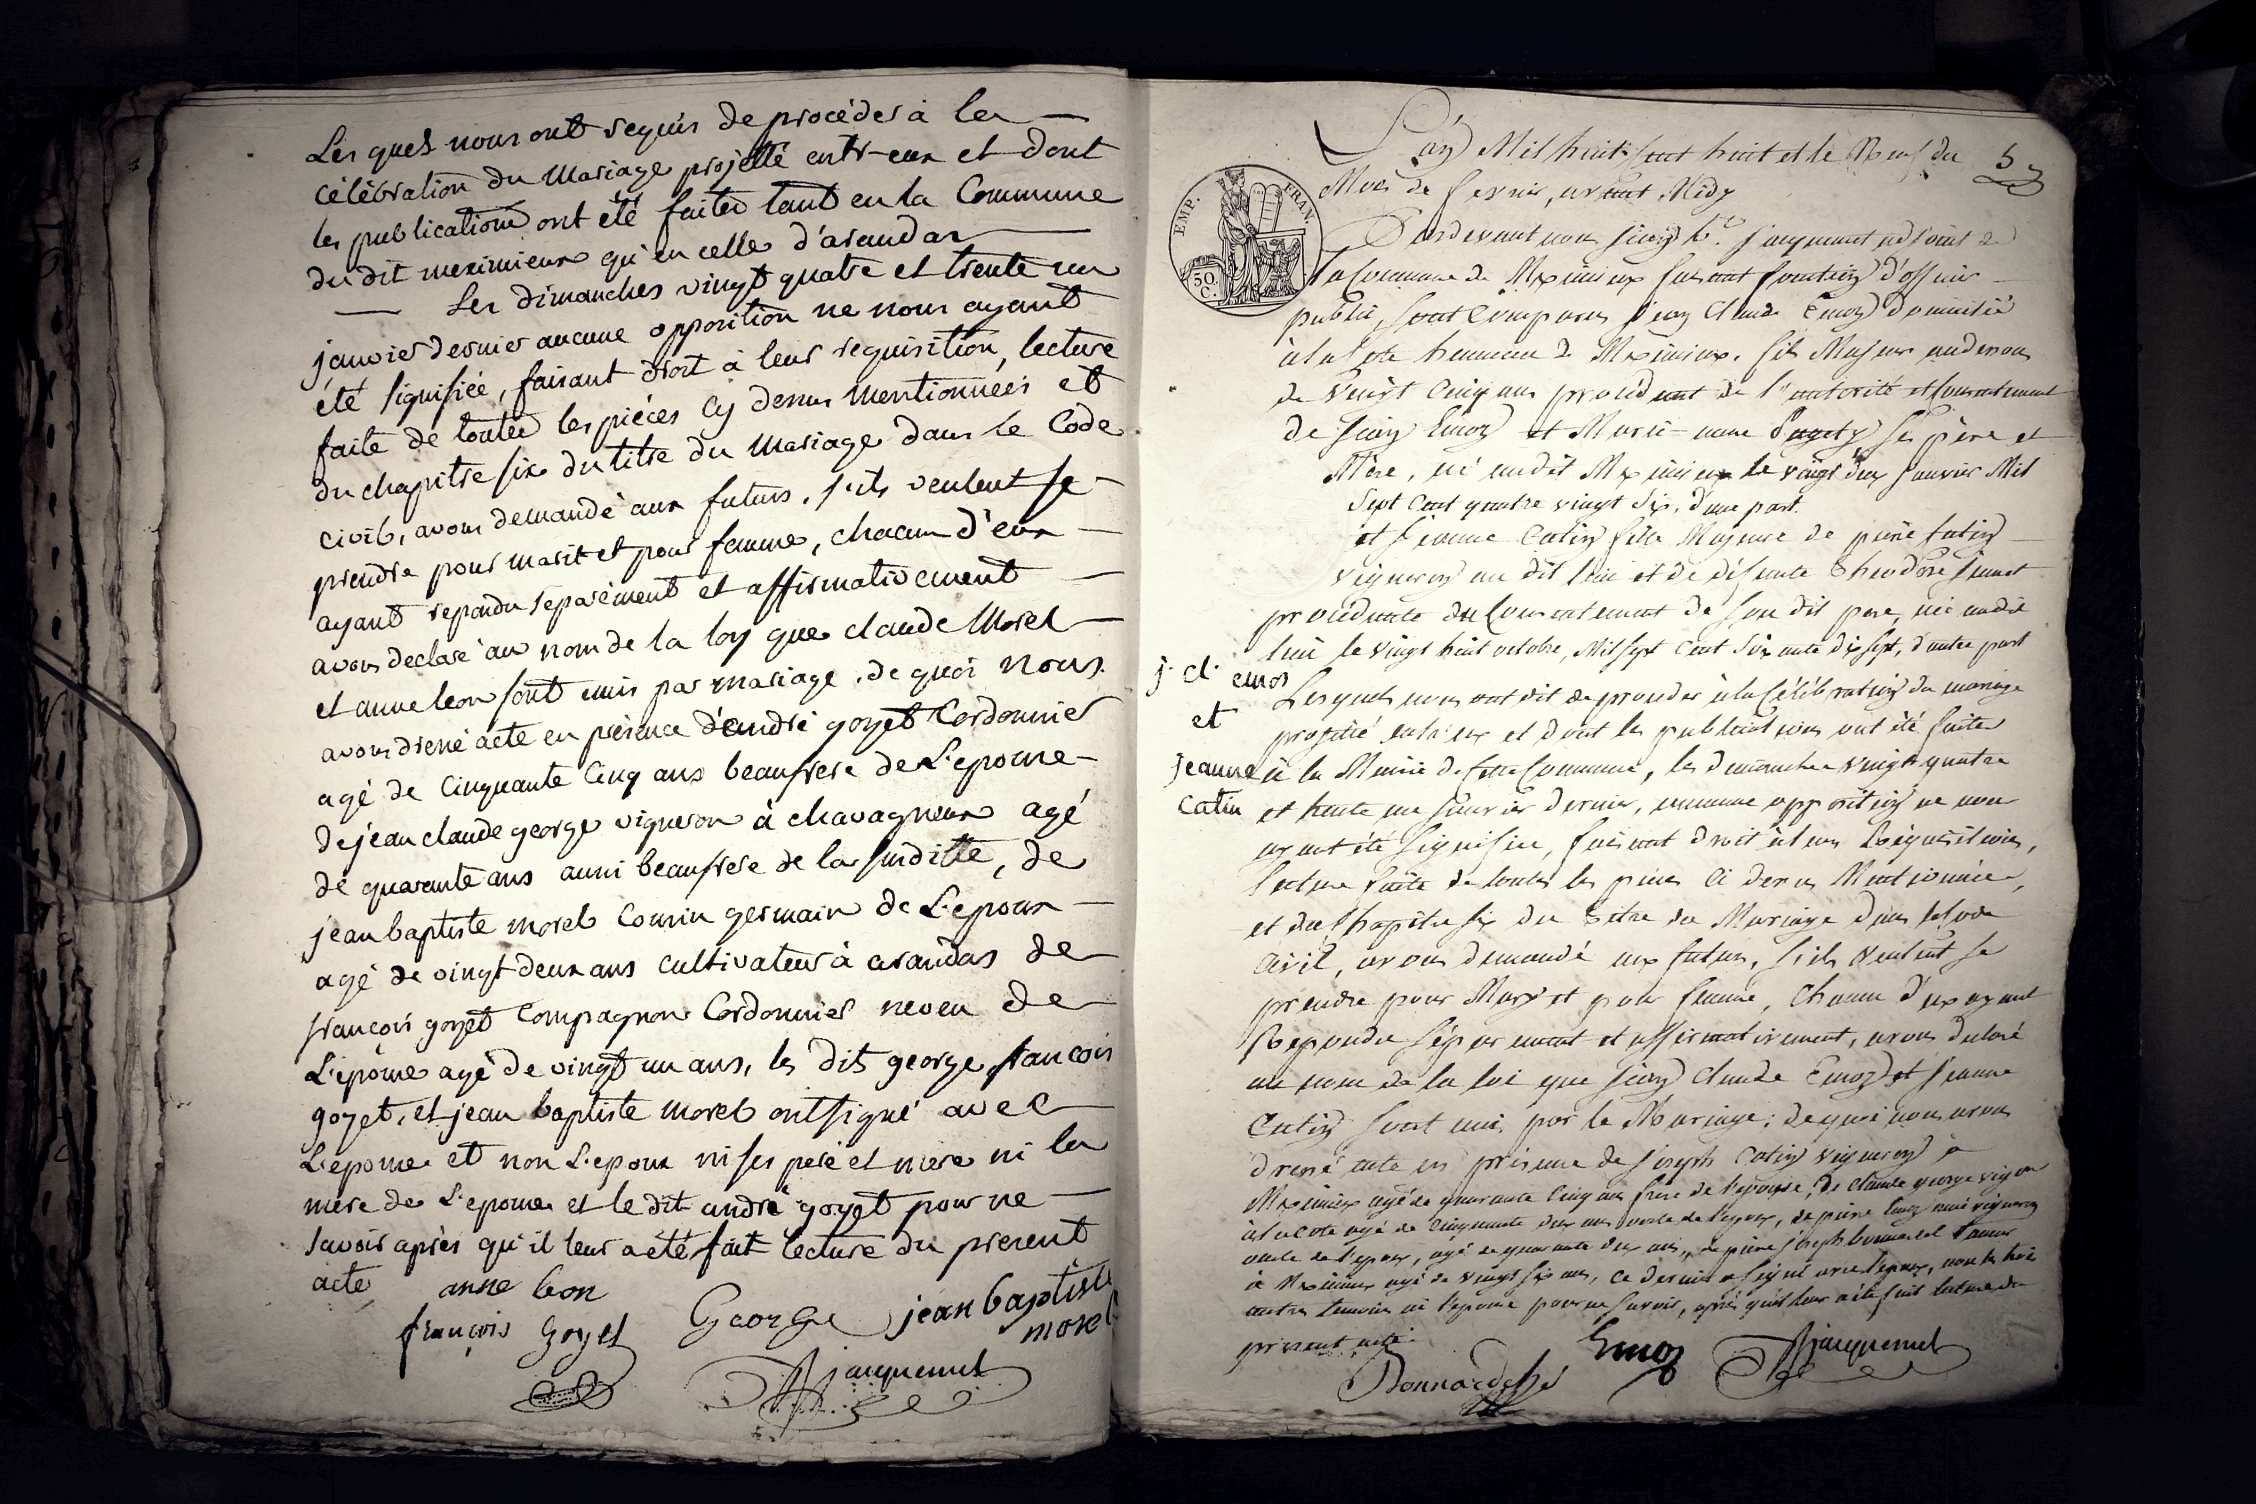 Les quels nous ont requis de procéder à la
célébration du mariage projetté entr-eux et dont
les publications ont été faites tant en la Commune
du dit meximieux qu'en celle d'arandas
Les dimanches vingt quatre et trente un
janvier dernier aucune opposition ne nous ayant
été signifiée, faisant droit à leur requisition, lecture
faite de toutes les pièces cy dessus mentionnées et
du chapitre six du titre du mariage dans le Code
civil, avons demandé aux futurs, s'ils veulent se
prendre pour marit et pour femme, chacun d'eux
ayant repondu separément et affirmativement
avons declaré au nom de la loy que claude Morel
et anne leon sont unis par mariage, de quoi nous
avons dressé acte en présence d'andré goyet Cordonnier
agé de cinquante cinq ans beaufrere de L'epouse
de jean claude george vigneron à chavagneux agé
de quarante ans aussi beaufrere de la suditte, de
jean baptiste morel Cousin germain de L'epoux
agé de vingt deux ans cultivateur à arandas de
françois goyet Compagnon Cordonnier neveu de
L'épouse agé de vingt un ans, les dits george françois
goyet, et jean baptiste morel ont signé avec
L'epouse et non L'epoux ni ses pere et mere ni la
mere de L'epouse et le dit andré goyet pour ne
savoir après qu'il leur a été fait lecture du present
acte
anne leon
françois goyet George jean baptiste
morel
jacquemet
L'an Mil huit cent huit et le Neuf du
Mois de fevrier, avant Midy
57
EMP. FRAN.
50 C.
Pardevant nous jacquemet adjoint de
la Commune de Meximieux faisant fonction d'officier
public, sont Comparus jean Claude Emoz Domicilié
à la Cote hameau de Meximieux, fils Majeur au dessous
de vingt cinq ans procédant de l'autorité et Consentement
de jean Emoz et Marie-anne ses père et
Mère, né audit Meximieux le vingt deux janvier Mil
Sept Cent quatre vingt Six, d'une part.
et jeanne Catin fille Majeure de pierre Catin
vigneron au dit lieu et de défunte
procédante du Consentement de son dit pere, née audit
lieu le vingt huit octobre, Mil Sept Cent Soixante dix Sept, d'autre part
j. cl. emoz
et
jeanne
catin
Lesquels nous ont dit de procéder à la Célébration du mariage
projetté entr'eux et dont les publications ont été faites
à la Mairie de Cette Commune, les dimanches vingt quatre
et trente un janvier dernier, aucune opposition ne nous
ayant été signifiée, faisant droit à leurs Réquisitions,
lecture faite de toutes les pièces Ci dessus Mentionnées,
et du Chapitre Six du Titre du Mariage dans le Code
Civil, avons demandé aux futurs, s'ils veulent se
prendre pour Mary et pour femme, Chacun d'eux ayant
Repondu Séparement et affirmativement, avons declaré
au nom de la loi que jean Claude Emoz et jeanne
Catin Sont unis par le Mariage; de quoi nous avons
dressé acte en présence de joseph Catin vigneron à
Meximieux agé de quarante Cinq ans frere de l'épouse, de Claude george vigneron
à la Cote agé de Cinquante deux ans oncle de l'epoux, de pierre Emoz aussi vigneron
oncle de l'epoux, agé de quarante deux ans, de pierre joseph
à Meximieux agé de vingt Six ans, ce dernier a signé avec l'epoux, non les trois
autres temoins ni l'epouse pour ne savoir, après qu'il leur a été fait lecture du
présent acte.
Emoz jacquemet